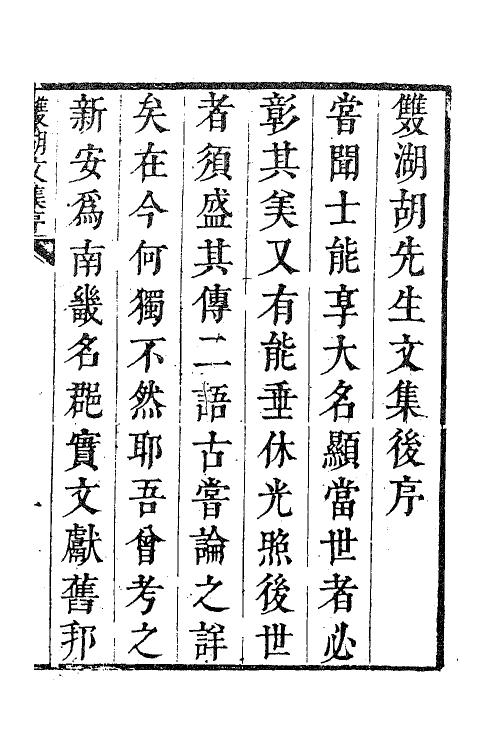 雙湖胡先生文集後序
嘗聞士能享大名顯當世者必
彰其美又有能垂休光照後世
者須盛其傳二語古嘗論之詳
矣在今何獨不然耶吾曾考之
新安爲南畿名郡實文獻舊邦
雙湖文集序